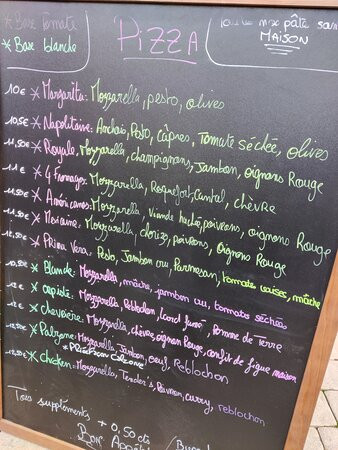 * Base tomate
* Base blanche
PIZZA
Toutes nos pâte sont
MAISON
10€ * Margarita: Mozzarella, pesto, olives
10,5€ * Napolitaine: Anchois, Pesto, câpres, Tomate séchée, olives
11,50€ * Royale: Mozzarella, champignons, Jambon, oignons Rouge
11€ * 4 Fromages: Mozzarella, Roquefort, Cantal, chèvre
* Mozzarella, Viande haché, poivrons, oignons Rouge
11,50€ * Mexicaine: Mozzarella, chorizo, poivrons, Oignons Rouge
* Prima Vera: Pesto, Jambon cru, Parmesan, tomate cerises, mâche
* Blande: Mozzarella, mâche, jambon cru, tomates séchées
* Mozzarella, Reblochon, Lard fumé, Pomme de Terre
* chevrière: Mozzarella, chèvre, oignon Rouge, confit de figue maison
* Mozzarella, Jambon, oeuf, Reblochon
* chicken: Mozzarella, Tender's, Poivron, curry, reblochon
suppléments + 0,50cts
Bon Appétit